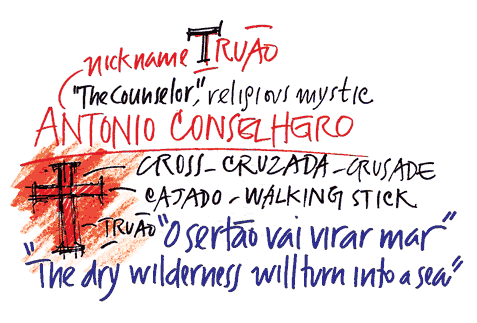 nickname TRUÃO
"The Counselor", religious mystic
ANTONIO CONSELHEIRO
CROSS - CRUZADA - CRUSADE
CAJADO - WALKING STICK
TRUÃO "O sertão vai virar mar"
"The dry wilderness will turn into a sea"